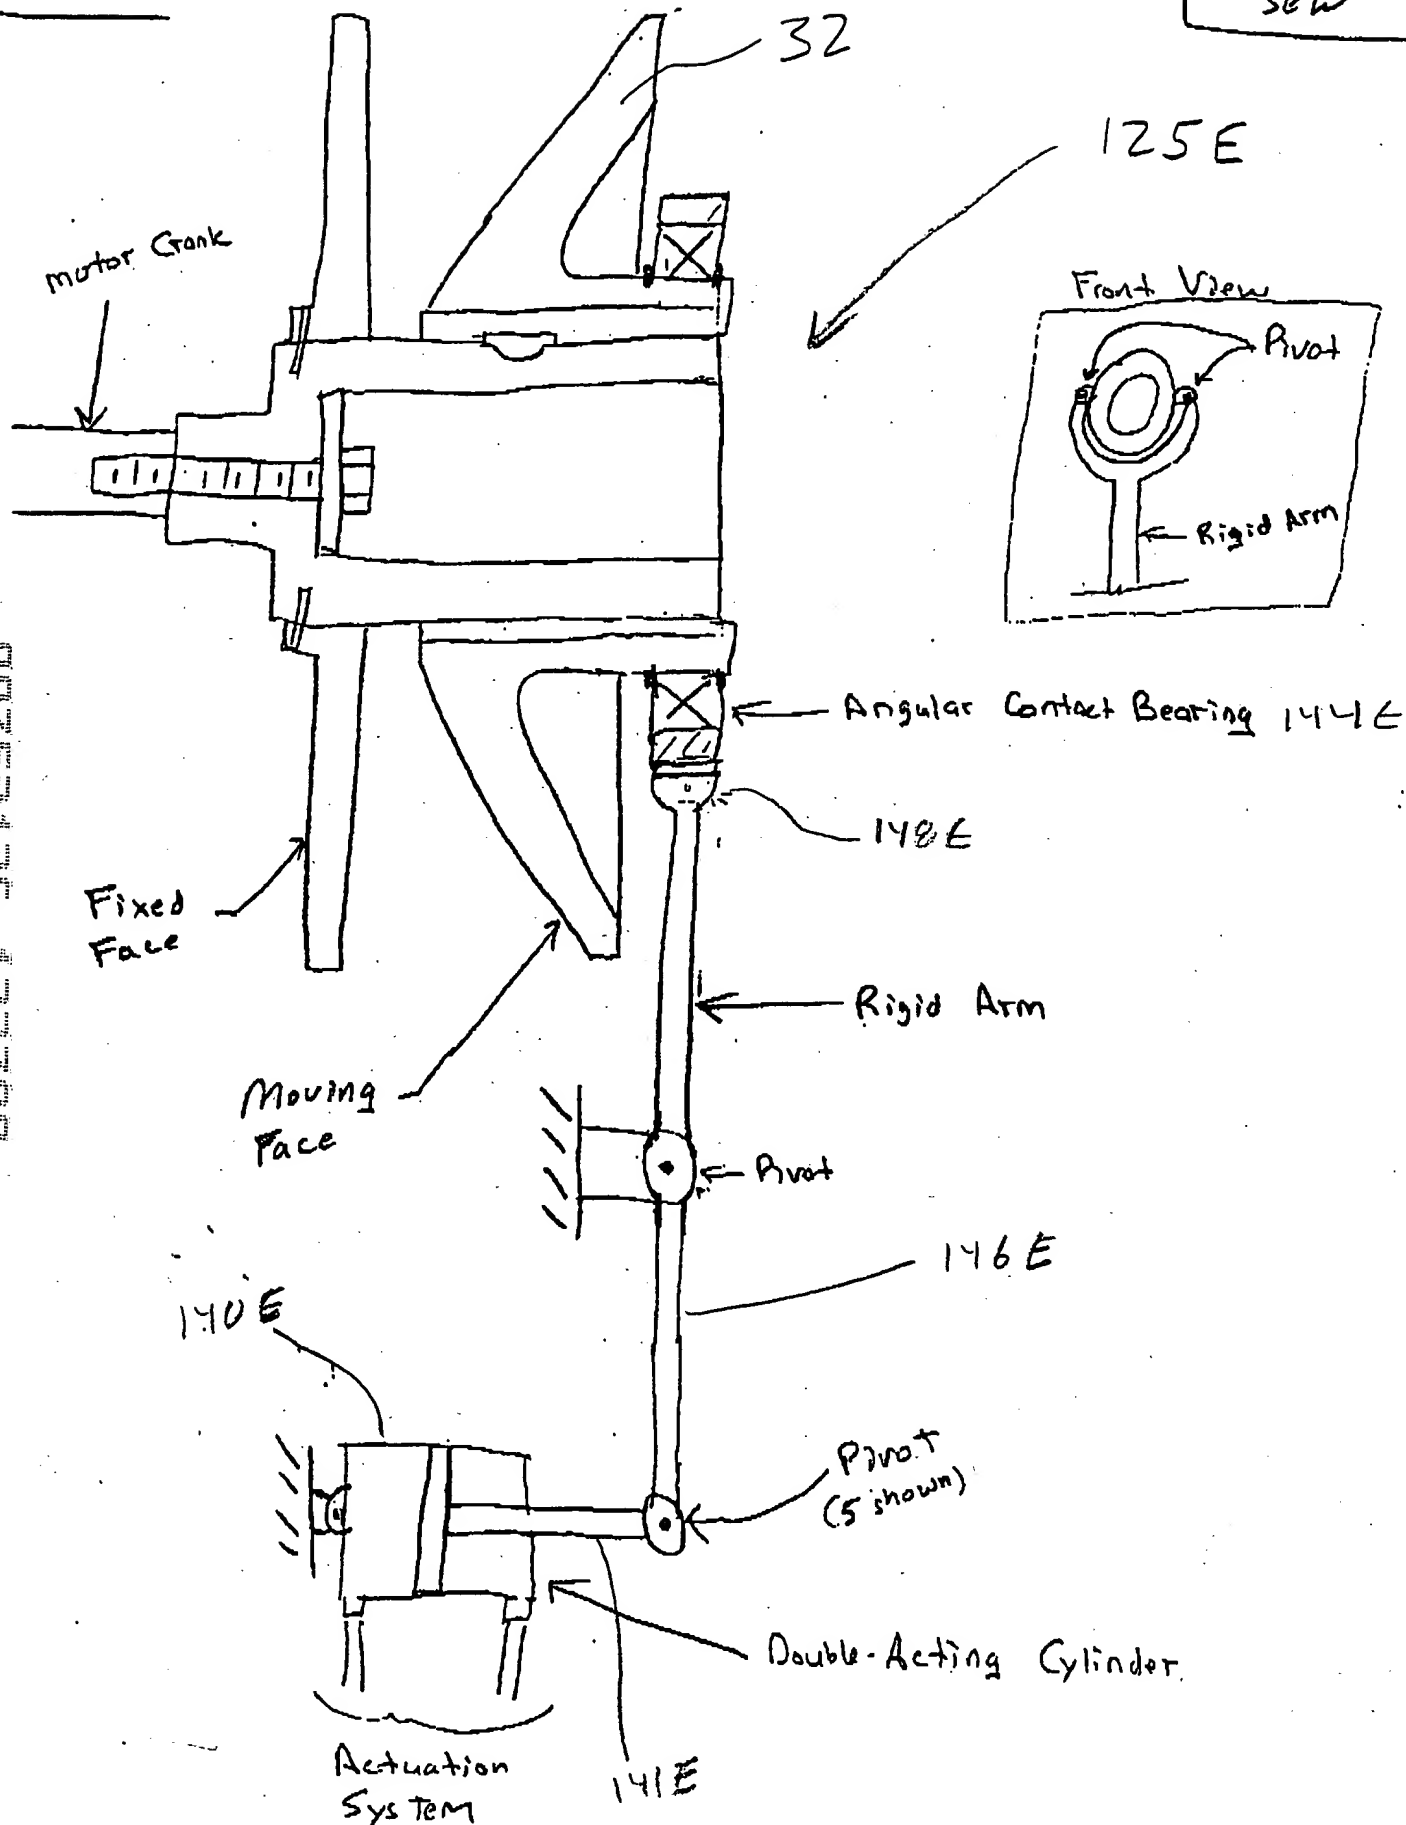 SEW
32
125E
motor Crank
Front View
Pivot
Rigid Arm
Angular Contact Bearing 144E
148E
Fixed
Face
Rigid Arm
Moving
Face
Pivot
146E
140E
Pivot
(5 shown)
Double-Acting Cylinder
Actuation
System
141E